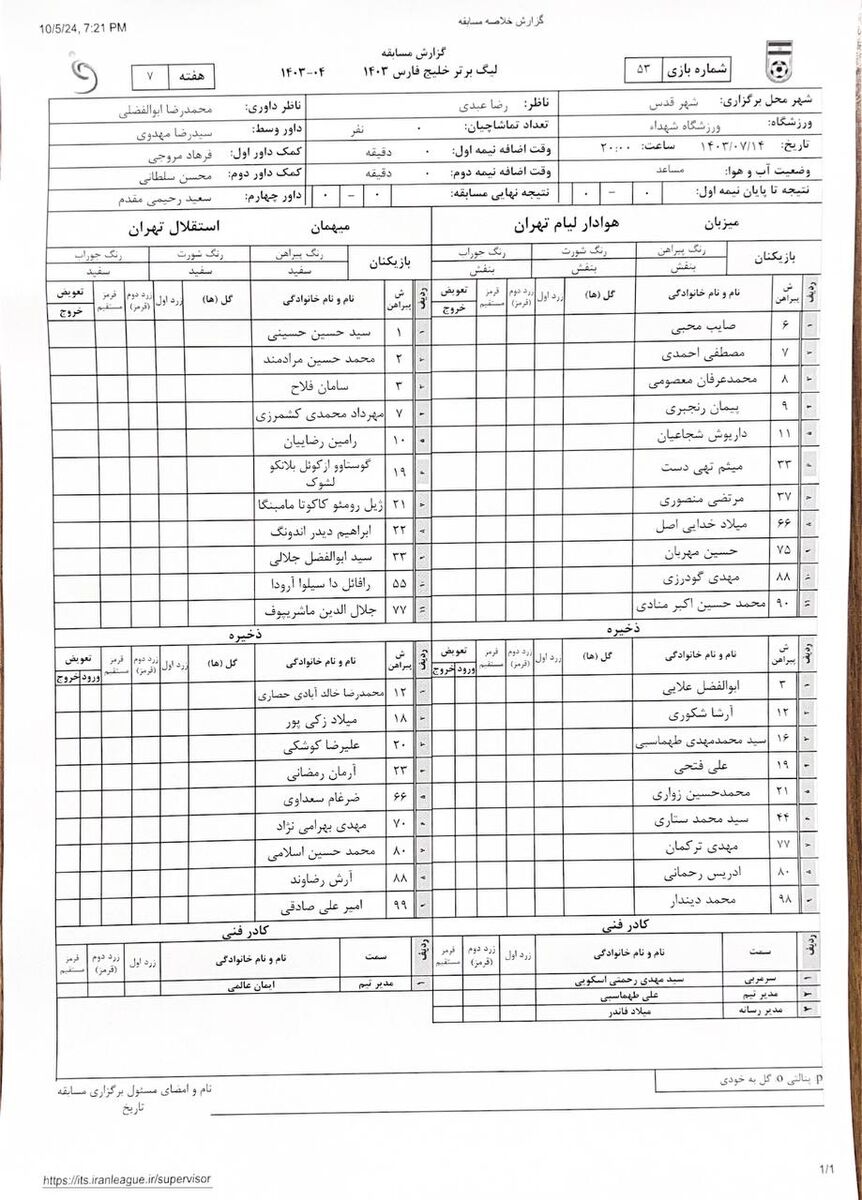 10/5/24, 7:21 PM
گزارش خلاصه مسابقه
گزارش مسابقه
لیگ برتر خلیج فارس ۱۴۰۳ ۱۴۰۳-۰۴
شماره بازی ۵۳
هفته ۷
شهر محل برگزاری: شهر قدس
ناظر: رضا عبدی
ناظر داوری: محمدرضا ابوالفضلی
ورزشگاه: ورزشگاه شهداء
تعداد تماشاچیان: ۰ نفر
داور وسط: سیدرضا مهدوی
تاریخ: ۱۴۰۳/۰۷/۱۴ ساعت: ۲۰:۰۰
وقت اضافه نیمه اول: ۰ دقیقه
کمک داور اول: فرهاد مروجی
وضعیت آب و هوا: مساعد
وقت اضافه نیمه دوم: ۰ دقیقه
کمک داور دوم: محسن سلطانی
نتیجه تا پایان نیمه اول: ۰ – ۰
نتیجه نهایی مسابقه: ۰ – ۰
داور چهارم: سعید رحیمی مقدم
میزبان هوادار لیام تهران
بازیکنان
رنگ پیراهن رنگ شورت رنگ جوراب
بنفش بنفش بنفش
ردیف ش پیراهن نام و نام خانوادگی گل (ها) زرد اول زرد دوم (قرمز) قرمز مستقیم تعویض خروج
۱ ۶ صایب محبی
۲ ۷ مصطفی احمدی
۳ ۸ محمدعرفان معصومی
۴ ۹ پیمان رنجبری
۵ ۱۱ داریوش شجاعیان
۶ ۳۳ میثم تهی دست
۷ ۳۷ مرتضی منصوری
۸ ۶۶ میلاد خدایی اصل
۹ ۷۵ حسین مهربان
۱۰ ۸۸ مهدی گودرزی
۱۱ ۹۰ محمد حسین اکبر منادی
ذخیره
ردیف ش پیراهن نام و نام خانوادگی گل (ها) زرد اول زرد دوم (قرمز) قرمز مستقیم تعویض ورود خروج
۱ ۳ ابوالفضل علایی
۲ ۱۲ آرشا شکوری
۳ ۱۶ سید محمدمهدی طهماسبی
۴ ۱۹ علی فتحی
۵ ۲۱ محمدحسین زواری
۶ ۴۴ سید محمد ستاری
۷ ۷۷ مهدی ترکمان
۸ ۸۰ ادریس رحمانی
۹ ۹۸ محمد دیندار
کادر فنی
ردیف سمت نام و نام خانوادگی زرد اول زرد دوم (قرمز) قرمز مستقیم
۱ سرمربی سید مهدی رحمتی اسکویی
۲ مدیر تیم علی طهماسبی
۳ مدیر رسانه میلاد قاندر
میهمان استقلال تهران
بازیکنان
رنگ پیراهن رنگ شورت رنگ جوراب
سفید سفید سفید
ردیف ش پیراهن نام و نام خانوادگی گل (ها) زرد اول زرد دوم (قرمز) قرمز مستقیم تعویض خروج
۱ ۱ سید حسین حسینی
۲ ۲ محمد حسین مرادمند
۳ ۳ سامان فلاح
۴ ۷ مهرداد محمدی کشمرزی
۵ ۱۰ رامین رضاییان
۶ ۱۹ گوستاوو ازکوئل بلانکو لشوک
۷ ۲۱ ژیل رومئو کاکوتا مامبنگا
۸ ۲۲ ابراهیم دیدر اندونگ
۹ ۳۳ سید ابوالفضل جلالی
۱۰ ۵۵ رافائل دا سیلوا آرودا
۱۱ ۷۷ جلال الدین ماشریپوف
ذخیره
ردیف ش پیراهن نام و نام خانوادگی گل (ها) زرد اول زرد دوم (قرمز) قرمز مستقیم تعویض ورود خروج
۱ ۱۲ محمدرضا خالد آبادی حصاری
۲ ۱۸ میلاد زکی پور
۳ ۲۰ علیرضا کوشکی
۴ ۲۳ آرمان رمضانی
۵ ۶۶ ضرغام سعداوی
۶ ۷۰ مهدی بهرامی نژاد
۷ ۸۰ محمد حسین اسلامی
۸ ۸۸ آرش رضاوند
۹ ۹۹ امیر علی صادقی
کادر فنی
ردیف سمت نام و نام خانوادگی زرد اول زرد دوم (قرمز) قرمز مستقیم
۱ مدیر تیم ایمان عالمی
p پنالتی o گل به خودی
نام و امضای مسئول برگزاری مسابقه
تاریخ
https://its.iranleague.ir/supervisor
1/1